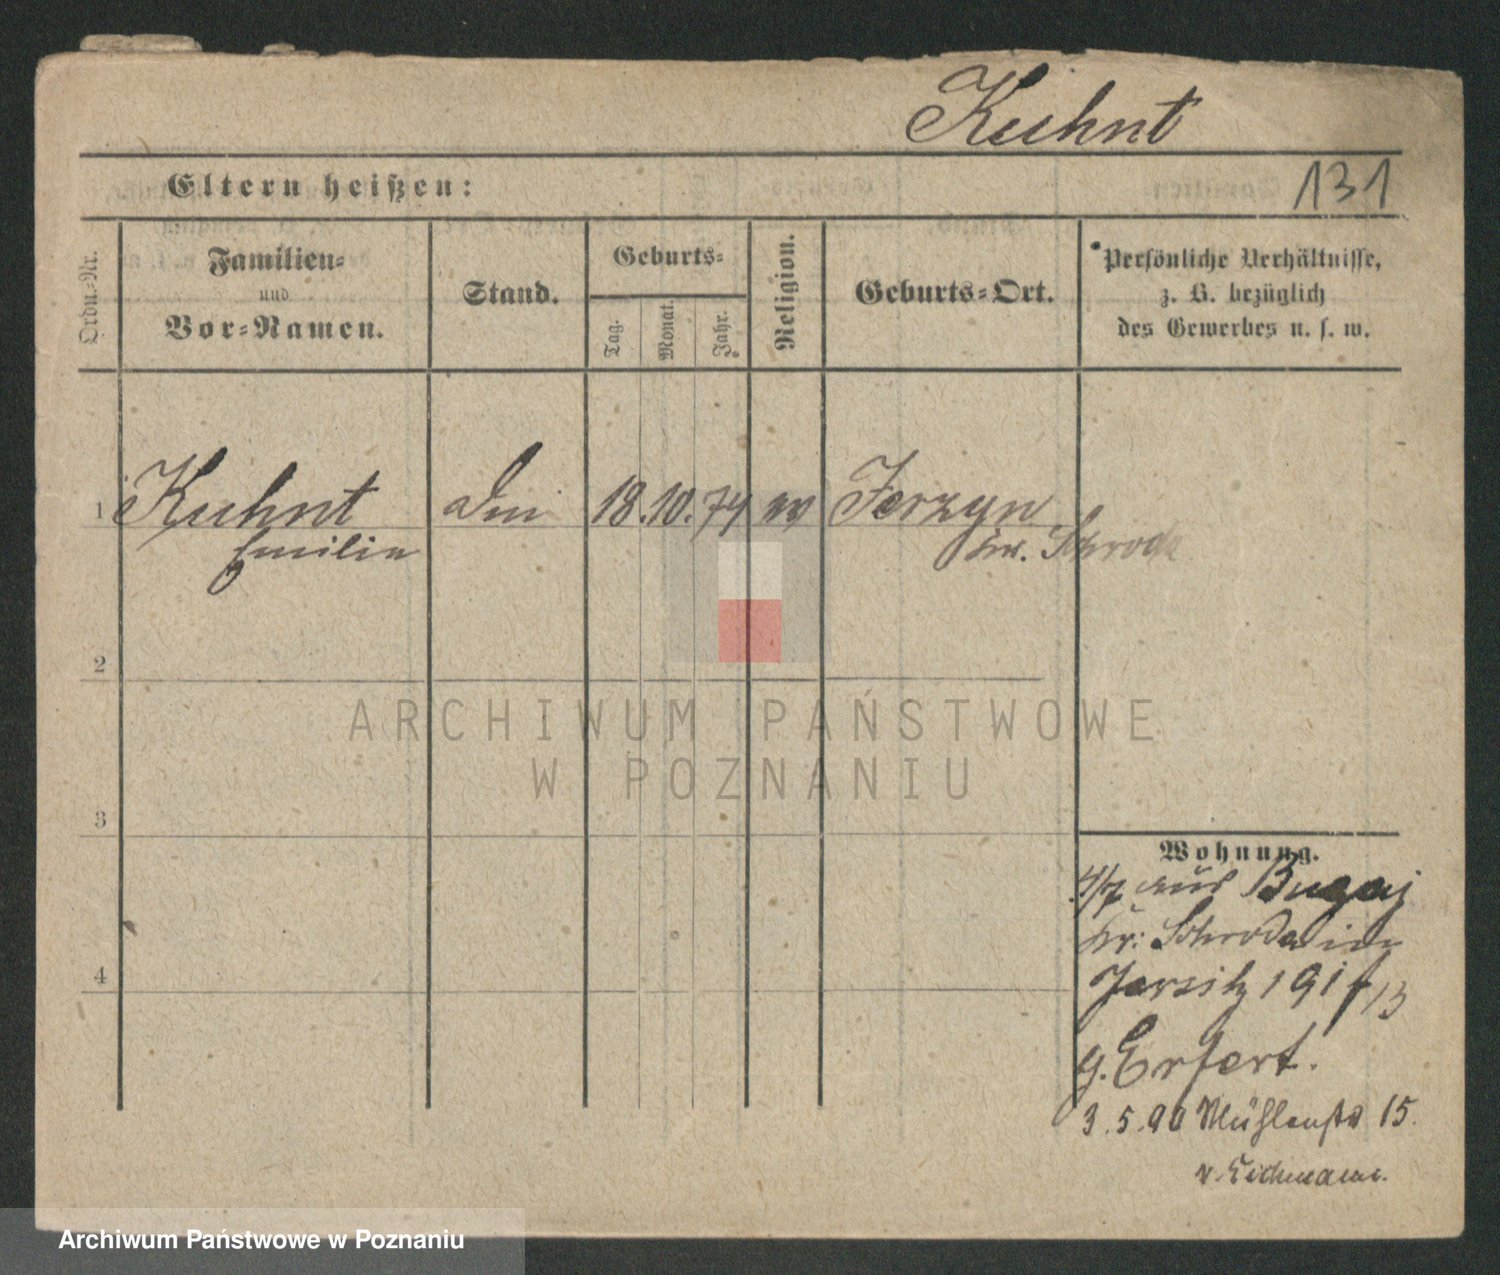 Kuhnt
131
Eltern heißen:
Ordn.-Nr.
Familien-
und
Vor-Namen.
Stand.
Geburts-
Tag.
Monat.
Jahr.
Religion.
Geburts-Ort.
Persönliche Verhältnisse,
z. B. bezüglich
des Gewerbes u. s. w.
1 Kuhnt 18. 10. 74 ev Jerzyn
Emilie Kr. Schroda
2
ARCHIWUM PAŃSTWOWE
W POZNANIU
3
Wohnung.
4/7 aus Bugaj
Kr. Schroda in
4
Jersitz 191
b. Erfert.
3.5.90 Mühlenstr 15.
v. Eichmann.
Archiwum Państwowe w Poznaniu